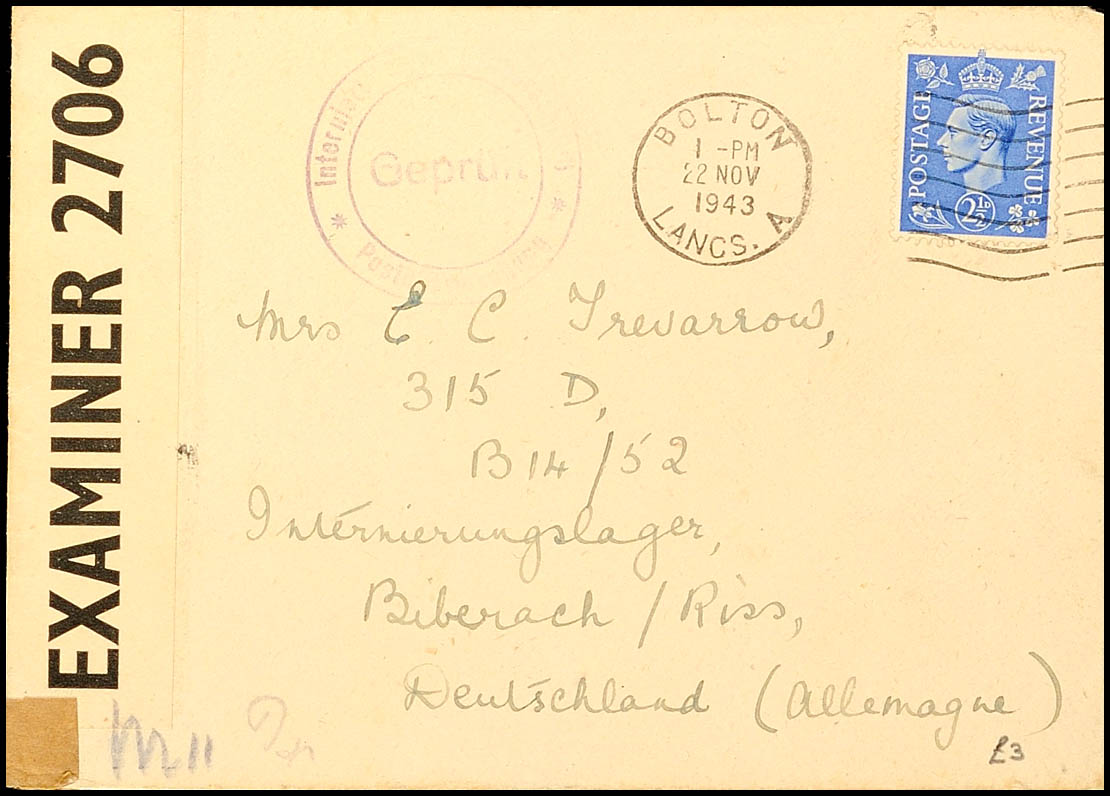 EXAMINER 2706
Geprüft
BOLTON
1 - PM
22 NOV
1943
LANCS. A
POSTAGE REVENUE
2½D
Mrs E C. Trevarrow,
315 D,
B14/52
Internierungslager,
Biberach / Riss,
Deutschland (Allemagne)
£3